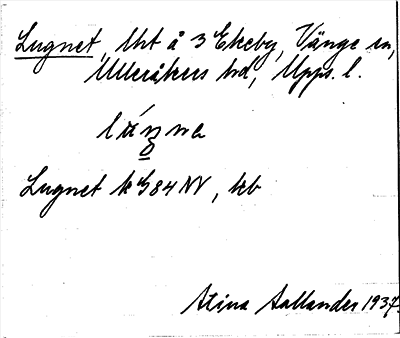 Lugnet, lht å 3 Ekeby, Vänge sn,
Ulleråkers hd, Upps. l.
Lugnet k G84 NV, hb
Stina Sallander 1937.